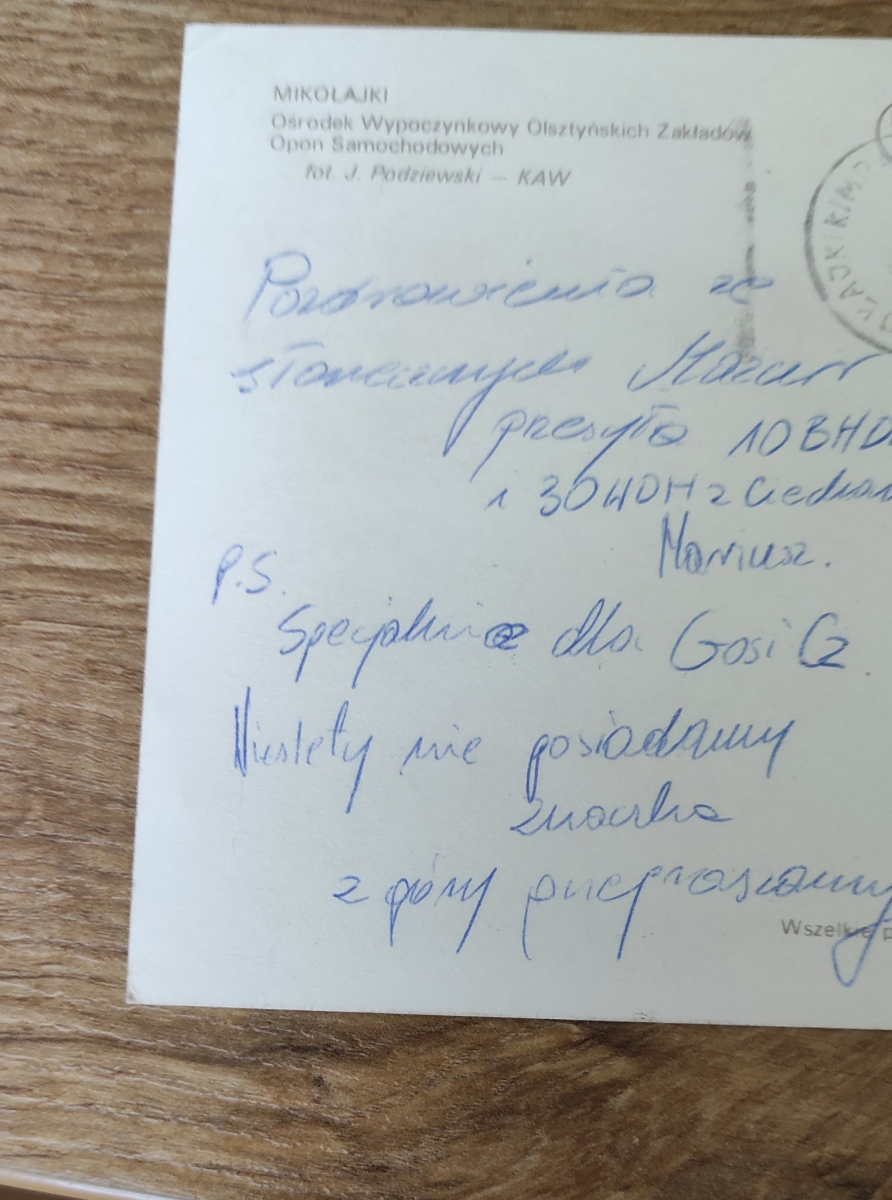 MIKOŁAJKI
Ośrodek Wypoczynkowy Olsztyńskich Zakładów
Opon Samochodowych
fot. J. Podziewski — KAW
Pozdrowienia ze
słonecznych Mazur
przesyła 10 BHD
i 30 WDH z
Mariusz.
P.S.
Specjalnie dla Gosi Cz.
Niestety nie posiadamy
znaczka
z góry przepraszamy
Wszelkie p